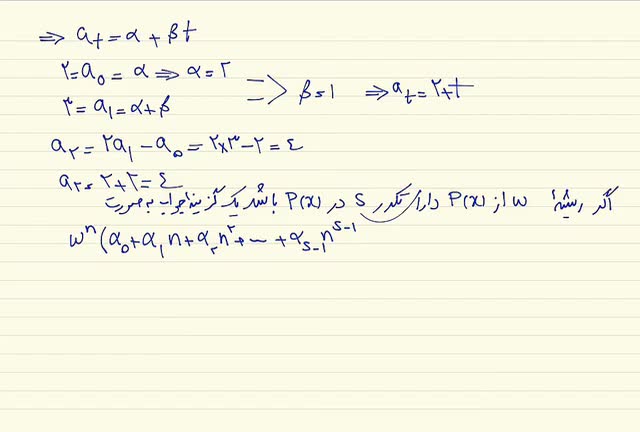 ⇒ a_t = α + βt
۲ = a_۰ = α ⇒ α = ۲
۳ = a_1 = α + β ⇒ β = 1 ⇒ a_t = ۲ + t
a_۲ = ۲a_1 - a_۰ = ۲×۳ - ۲ = ٤
a_۲ = ۲ + ۲ = ٤
اگر ریشهٔ w از P(x) دارای تکرر S در P(x) باشد یک گزینه جواب به صورت
w^n (α_۰ + α_1 n + α_۲ n^۲ + ... + α_{S-1} n^{S-1}